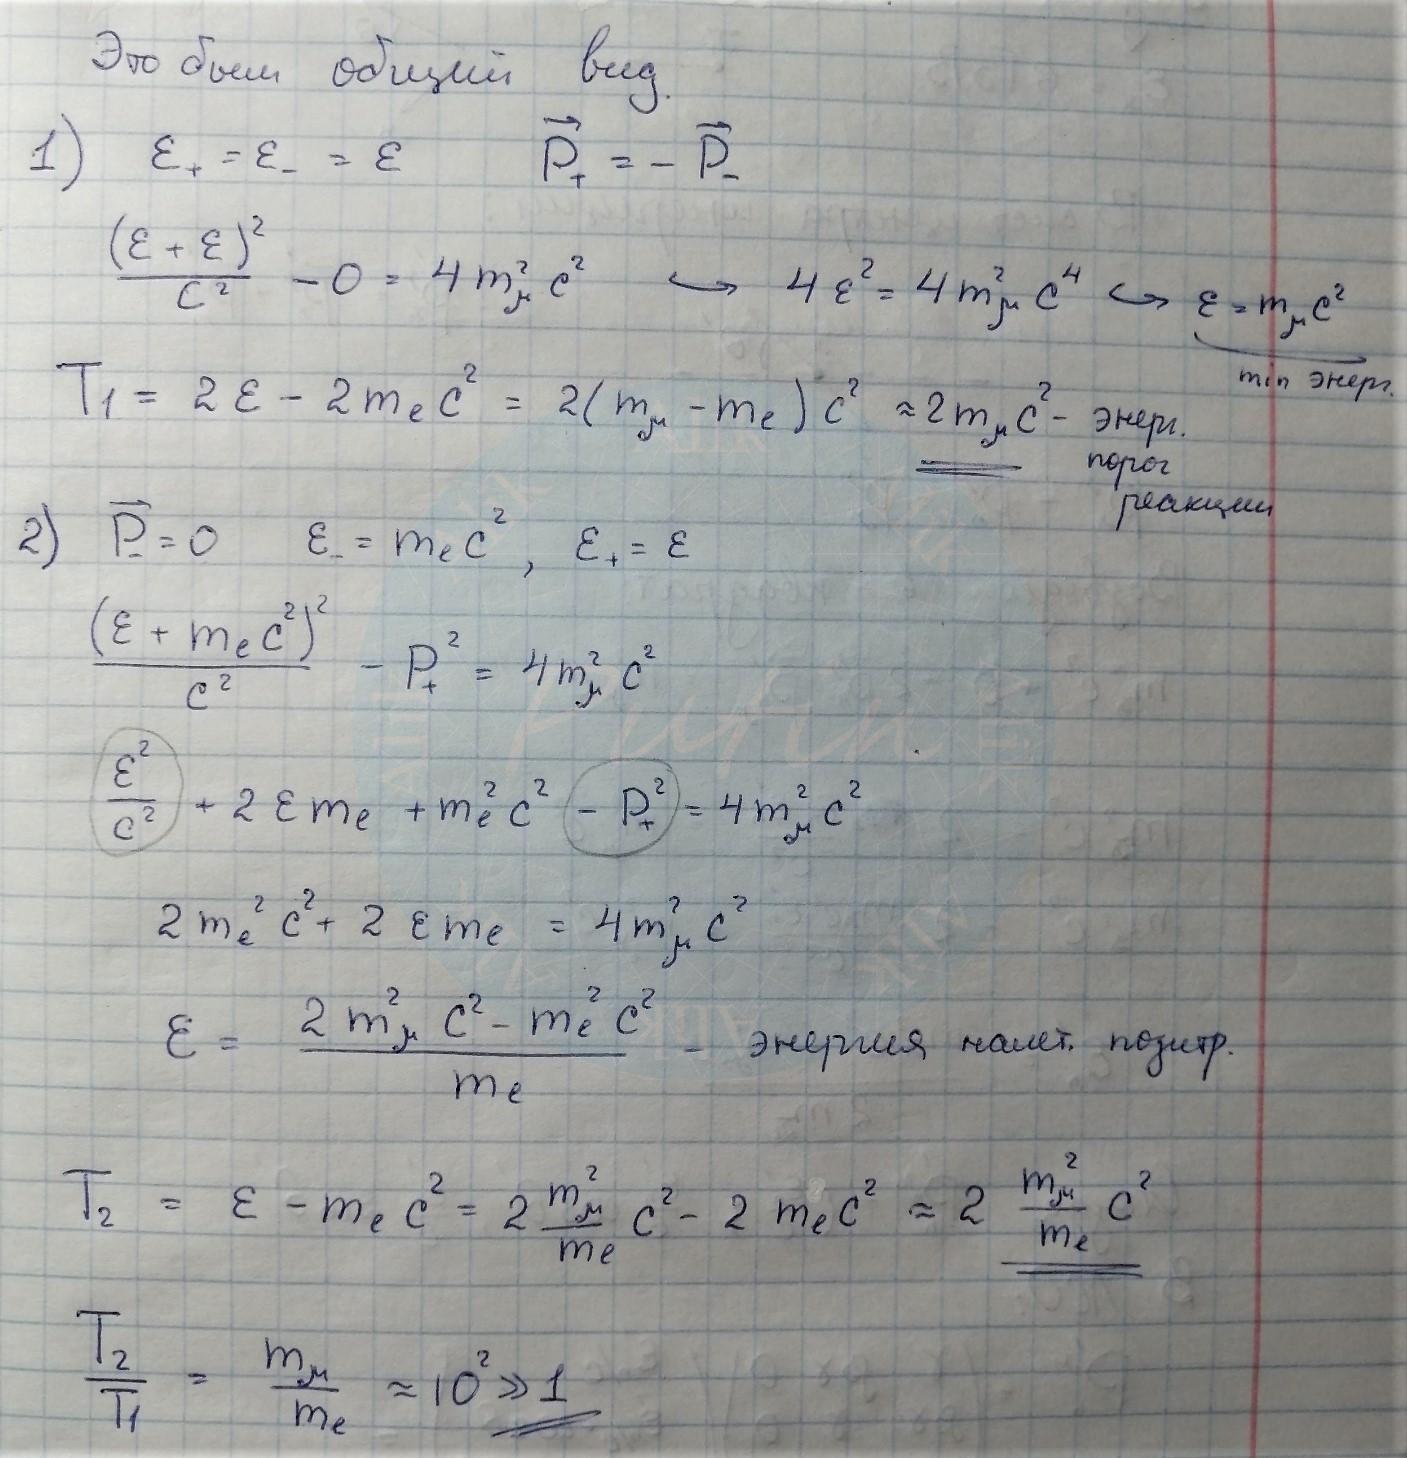 Это был общий вид.
1) ε₊ = ε₋ = ε   P⃗₊ = − P⃗₋
(ε + ε)²/c² − 0 = 4m²_μ c² ↪ 4ε² = 4m²_μ c⁴ ↪ ε = m_μ c²
min энерг.
T₁ = 2ε − 2mₑc² = 2(m_μ − mₑ)c² ≈ 2m_μ c² − энерг.
порог
реакции
2) P⃗₋ = 0   ε₋ = mₑc², ε₊ = ε
(ε + mₑc²)²/c² − P₊² = 4m²_μ c²
ε²/c² + 2εmₑ + mₑ²c² − P₊² = 4m²_μ c²
2mₑ²c² + 2εmₑ = 4m²_μ c²
ε = (2m²_μ c² − mₑ²c²)/mₑ − энергия налет. позитр.
T₂ = ε − mₑc² = 2 m²_μ/mₑ c² − 2 mₑc² ≈ 2 m²_μ/mₑ c²
T₂/T₁ = m_μ/mₑ ≈ 10² ≫ 1